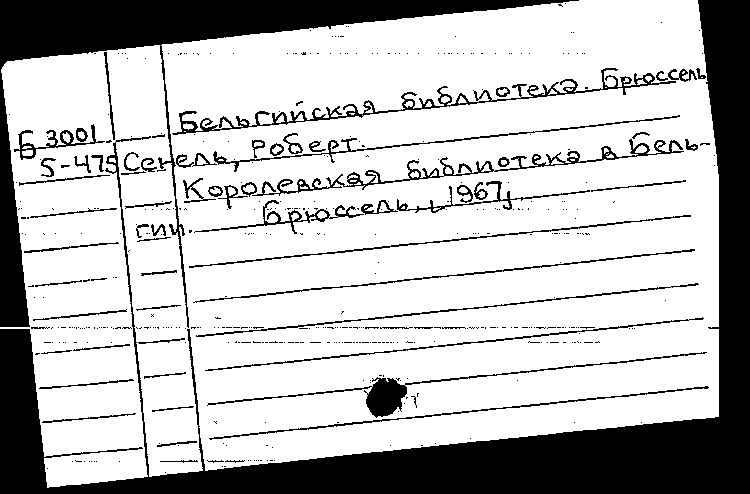 Бельгийская библиотека. Брюссель
Б 3001
5-475 Сенель, Роберт.
Королевская библиотека в Бель-
гии. Брюссель, [1967]